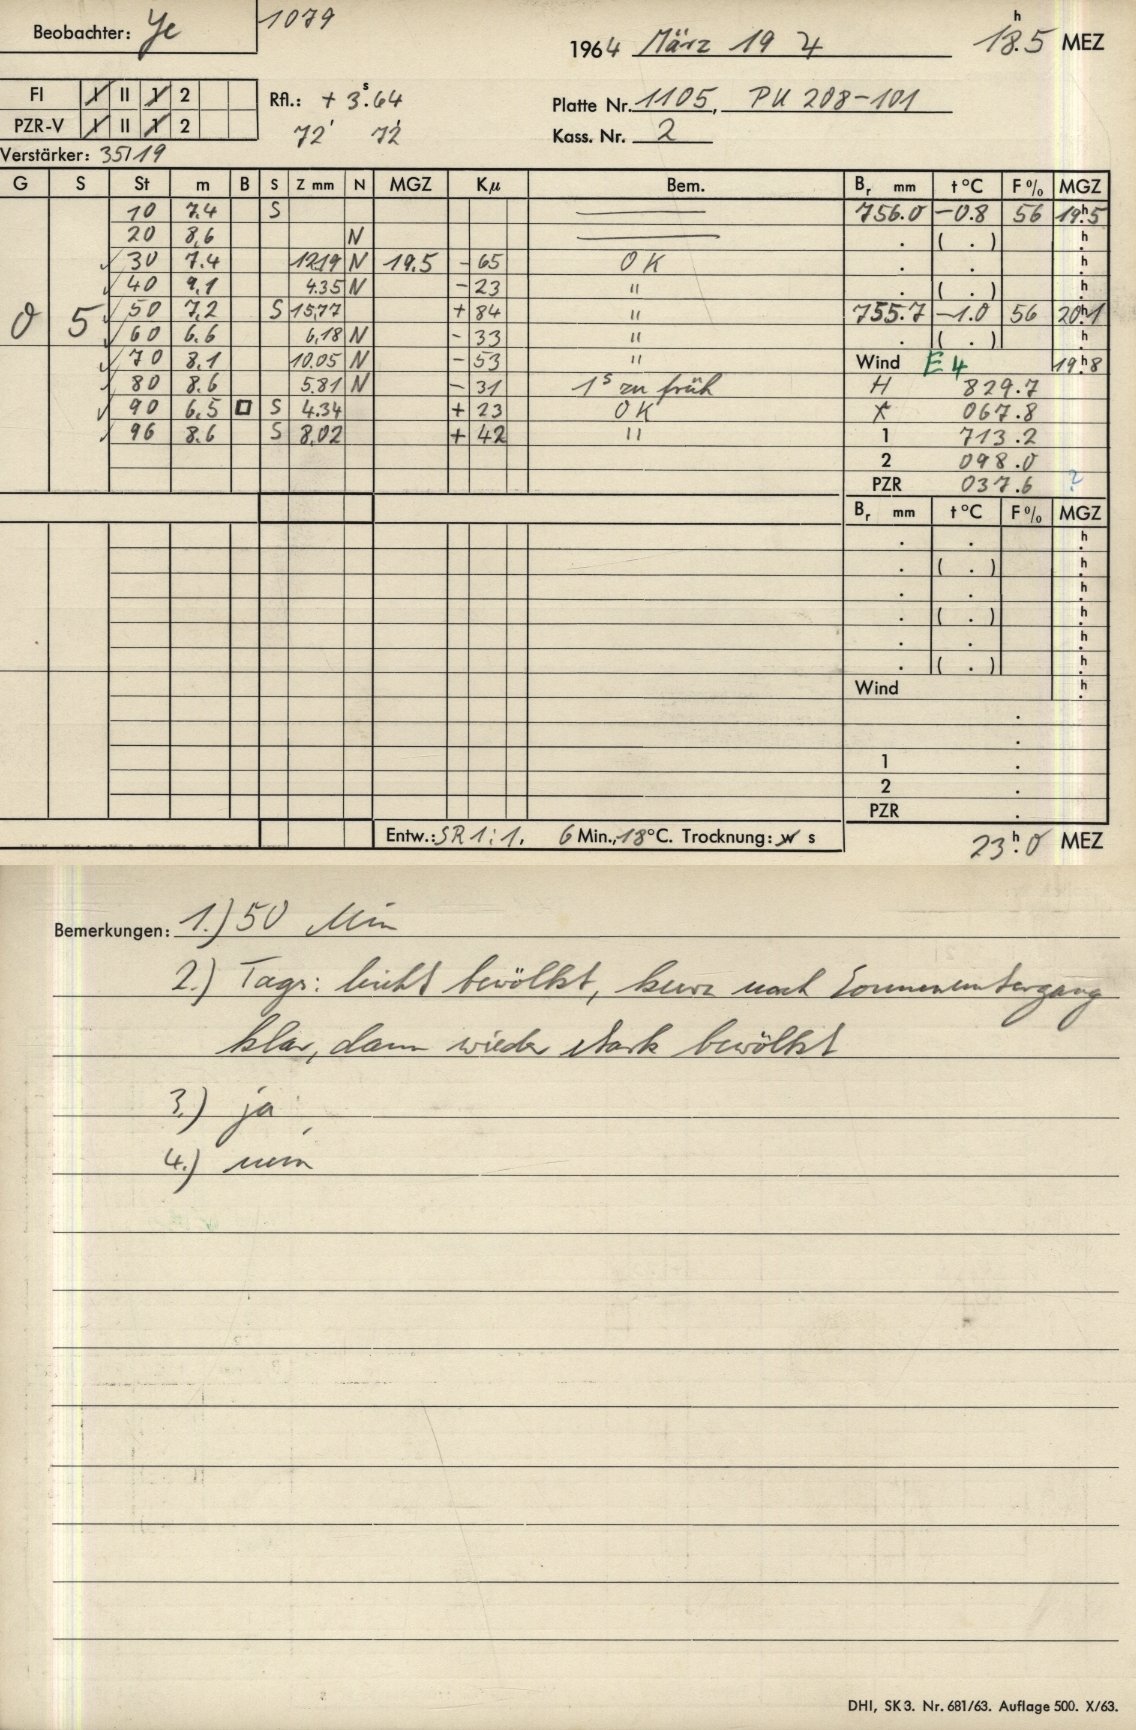 Beobachter: Ye 1079
1964 März 19 4 18h.5 MEZ
FI I II 1 2
PZR-V I II 1 2
Rfl.: + 3s.64
72' 72'
Platte Nr. 1105, PU 208-101
Kass. Nr. 2
Verstärker: 35/19
G S St m B S Z mm N MGZ Kµ Bem. Br mm t °C F % MGZ
10 7.4 S 756.0 -0.8 56 19h.5
20 8.6 N . ( . ) h.
30 7.4 12.19 N 19.5 - 65 OK . . h.
40 9.1 4.35 N - 23 " . ( . ) h.
0 5 50 7.2 S 15.77 + 84 " 755.7 -1.0 56 20h.1
60 6.6 6.18 N - 33 " . ( . ) h.
70 8.1 10.05 N - 53 " Wind E 4 19h.8
80 8.6 5.81 N - 31 1s zu früh H 829.7
90 6.5 S 4.34 + 23 OK 067.8
96 8.6 S 8.02 + 42 " 1 713.2
2 098.0
PZR 037.6 ?
Br mm t °C F % MGZ
. . h.
. ( . ) h.
. . h.
. ( . ) h.
. . h.
. ( . ) h.
Wind h.
.
.
1 .
2 .
PZR .
Entw.: SR 1:1. 6 Min., 18°C. Trocknung: w s
23h.0 MEZ
Bemerkungen: 1.) 50 Min
2.) Tags: leicht bewölkt, kurz nach Sonnenuntergang
klar, dann wieder stark bewölkt
3.) ja
4.) nein
DHI, SK 3. Nr. 681/63. Auflage 500. X/63.